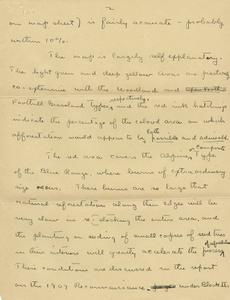 2
on map sheet) is fairly accurate - probably
within 10%.
The map is largely self explanatory.
The light green and deep yellow areas are
co-extensive with the Woodland and
Foothill Grassland types, respectively, and the red ink hatchings
indicate the percentage of the colored area on which
afforestation would appear to be both possible and advisable.
The red area covers the Alpine Type
of the Blue Range, where burns of extraordinary
size occur. These burns are so large that
natural reforestation along their edges will be
very slow in restocking the entire area, and
the planting or seeding of small copses of seed trees
in their interiors will greatly accelerate the process
These conditions are discussed in the report
on the 1909 Reconnaissance under